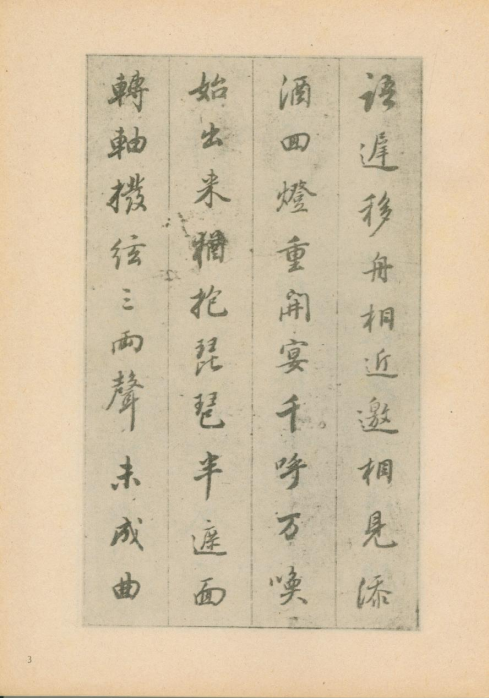 語遲移舟相近邀相見添
酒回燈重開宴千呼万喚
始出来猶抱琵琶半遮面
轉軸撥絃三兩聲未成曲
3